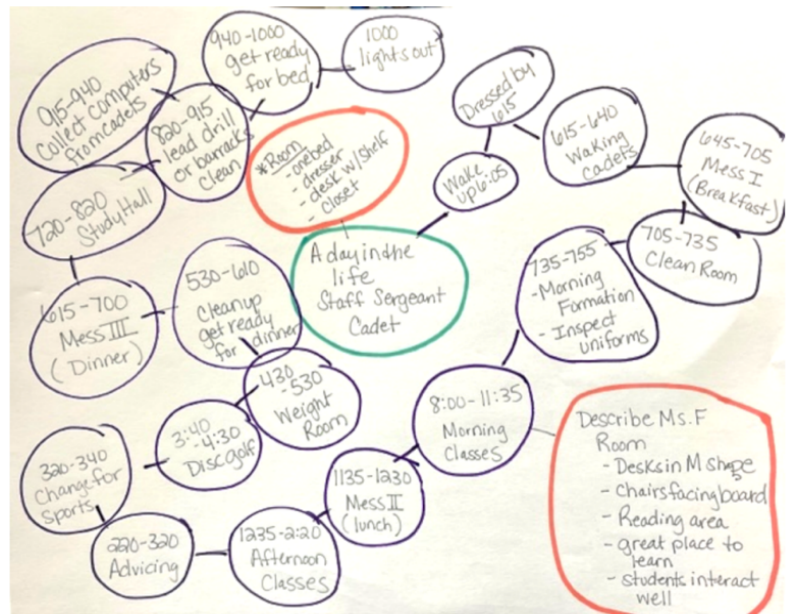 A day in the
life
Staff Sergeant
Cadet
*Room
- one bed
- dresser
- desk w/shelf
- closet
Wake
up 6:05
Dressed by
615
615-640
Waking
cadets
645-705
Mess I
(Breakfast)
705-735
Clean Room
735-755
- Morning
Formation
- Inspect
uniforms
8:00-11:35
Morning
Classes
Describe Ms. F
Room
- Desks in M shape
- Chairs facing board
- Reading area
- great place to
learn
- students interact
well
1135-1230
Mess II
(lunch)
1235-2:20
Afternoon
Classes
220-320
Advicing
320-340
Change for
sports
3:40
-4:30
Disc golf
430
-530
Weight
Room
530-610
Cleanup
get ready
for dinner
615-700
Mess III
(Dinner)
720-820
Study Hall
820-915
lead drill
or barracks
clean
915-940
Collect computers
from cadets
940-1000
get ready
for bed
1000
lights out